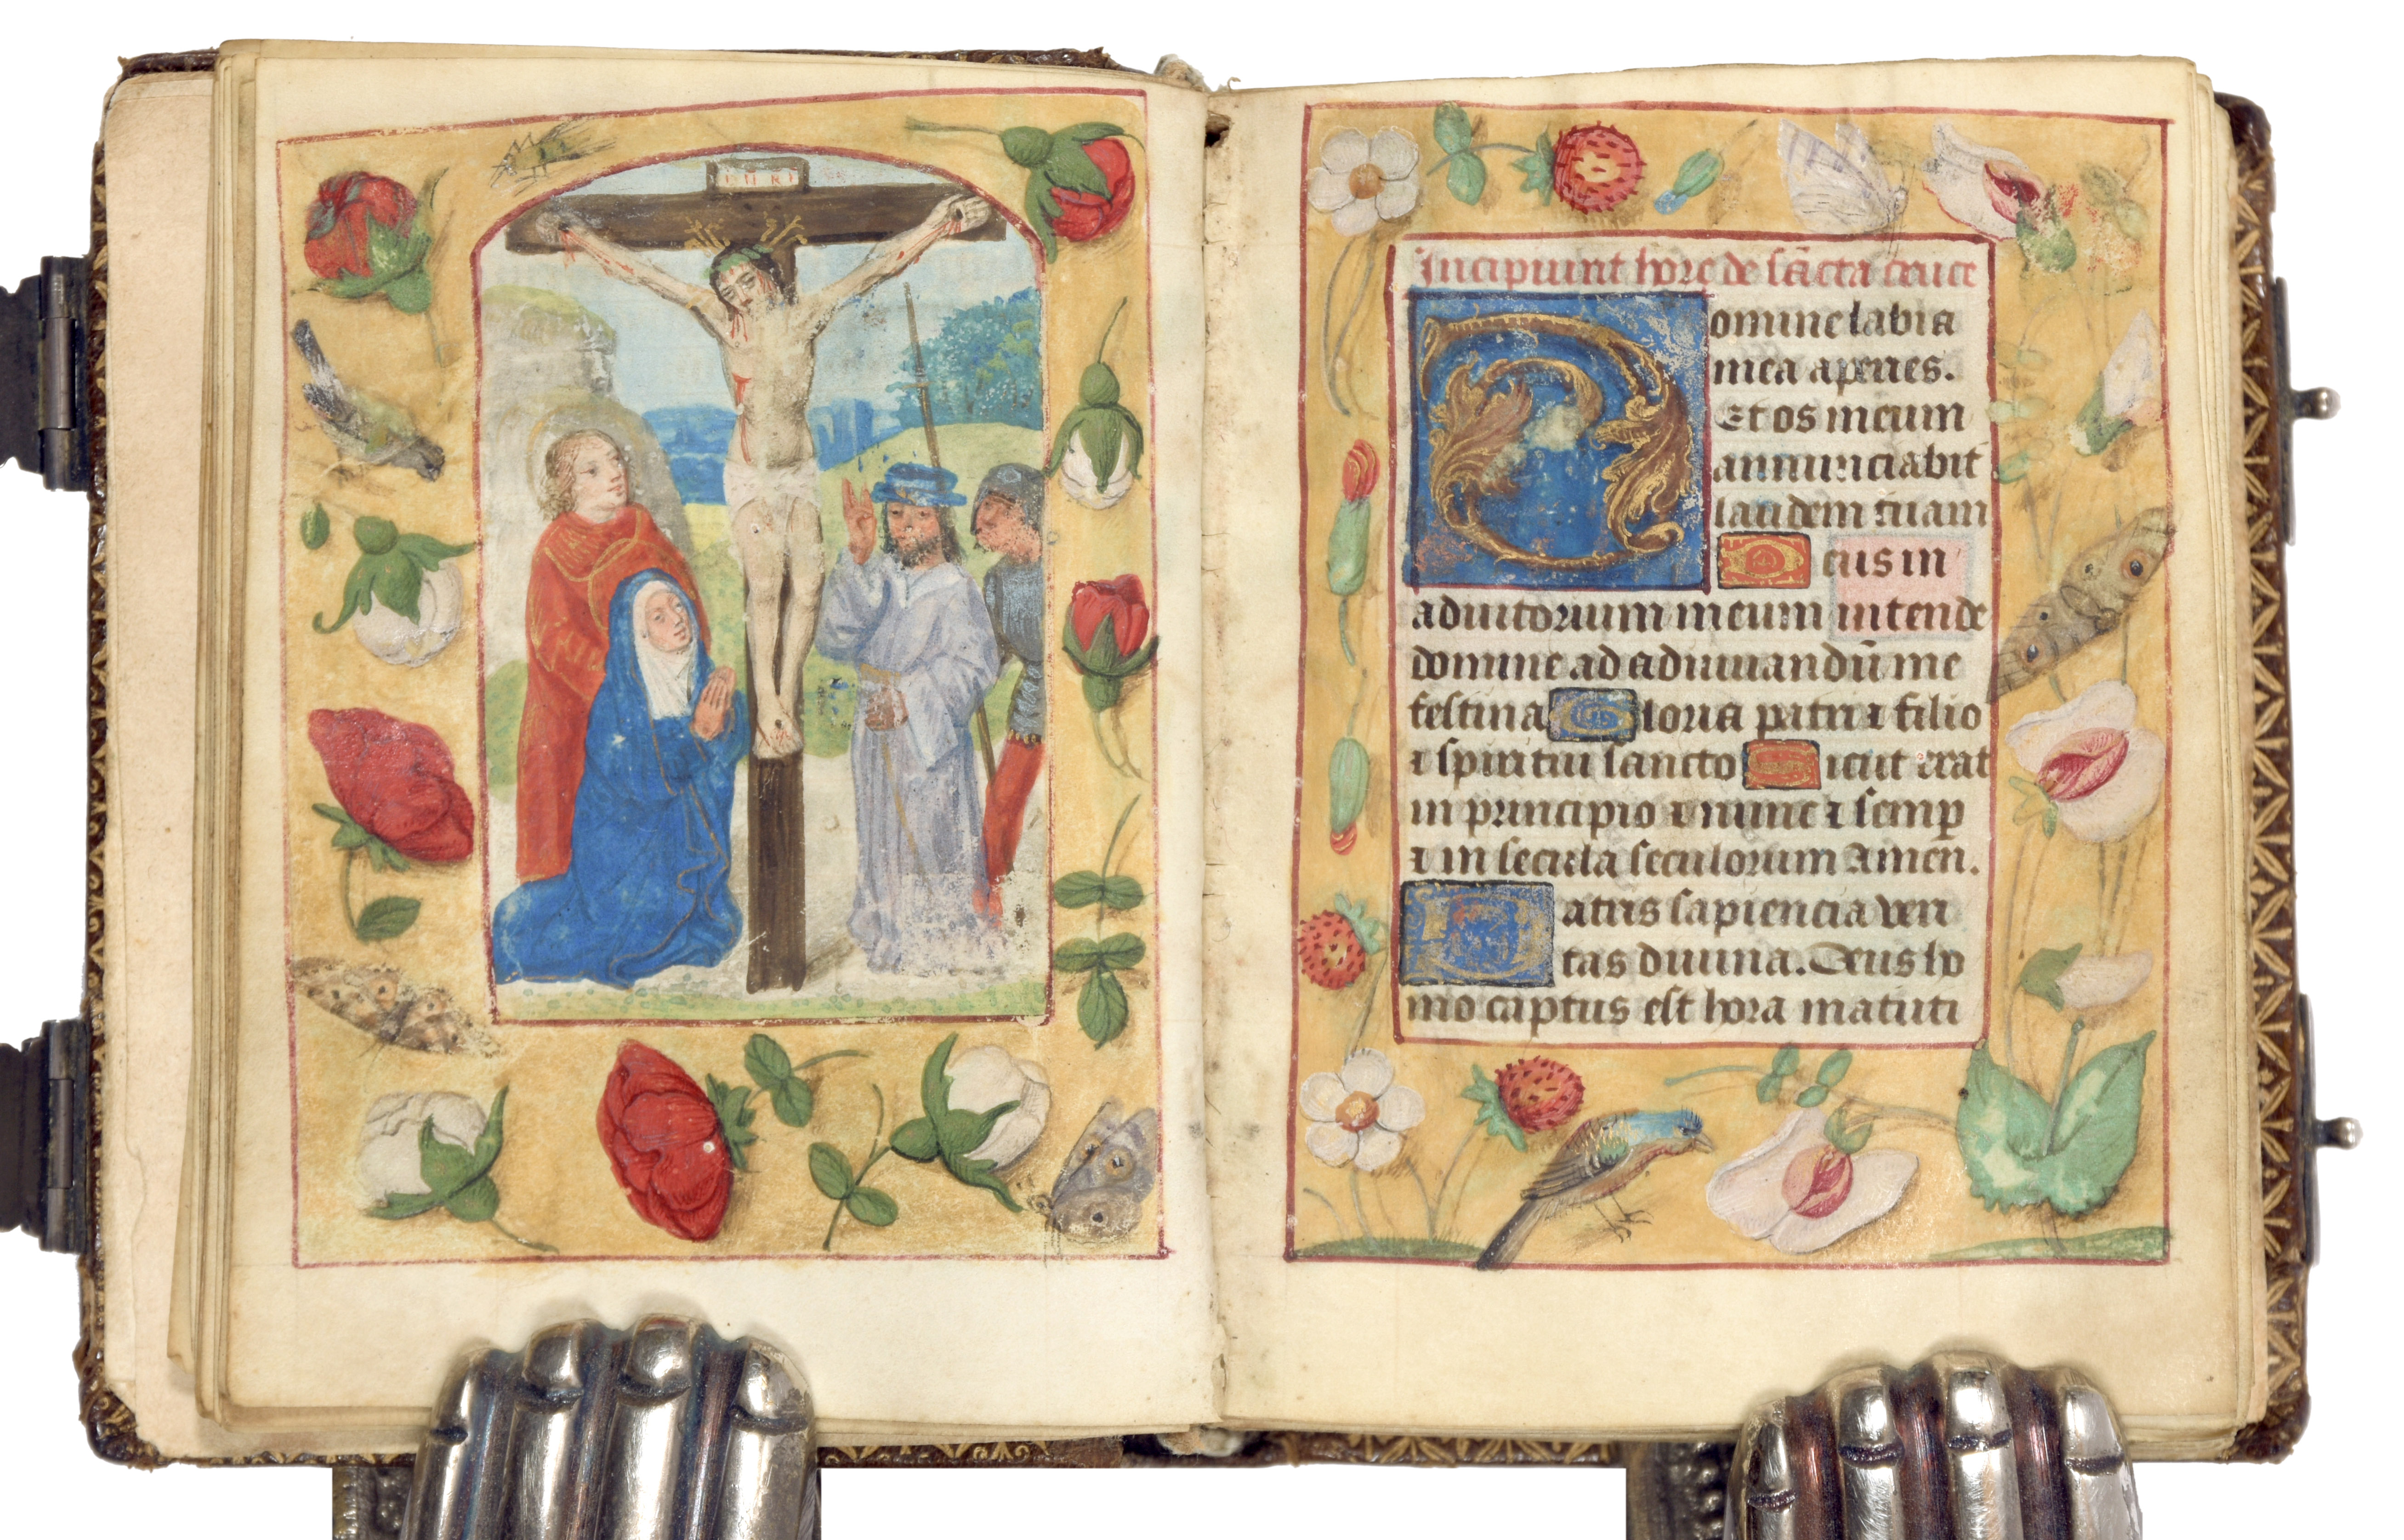 INRI
Incipiunt hore de sc̄acta cruce
Domine labia
mea aperies.
Et os meum
annunciabit
laudem tuam
Deus in
adiutorium meum intende
domine ad adiuuandū me
festina Gloria patri ⁊ filio
⁊ spiritui sancto Sicut erat
in principio ⁊ nunc ⁊ semꝑ
⁊ in secula seculorum Amen.
Patris sapiencia veri
tas diuina. Deus ho
mo captus est hora matuti